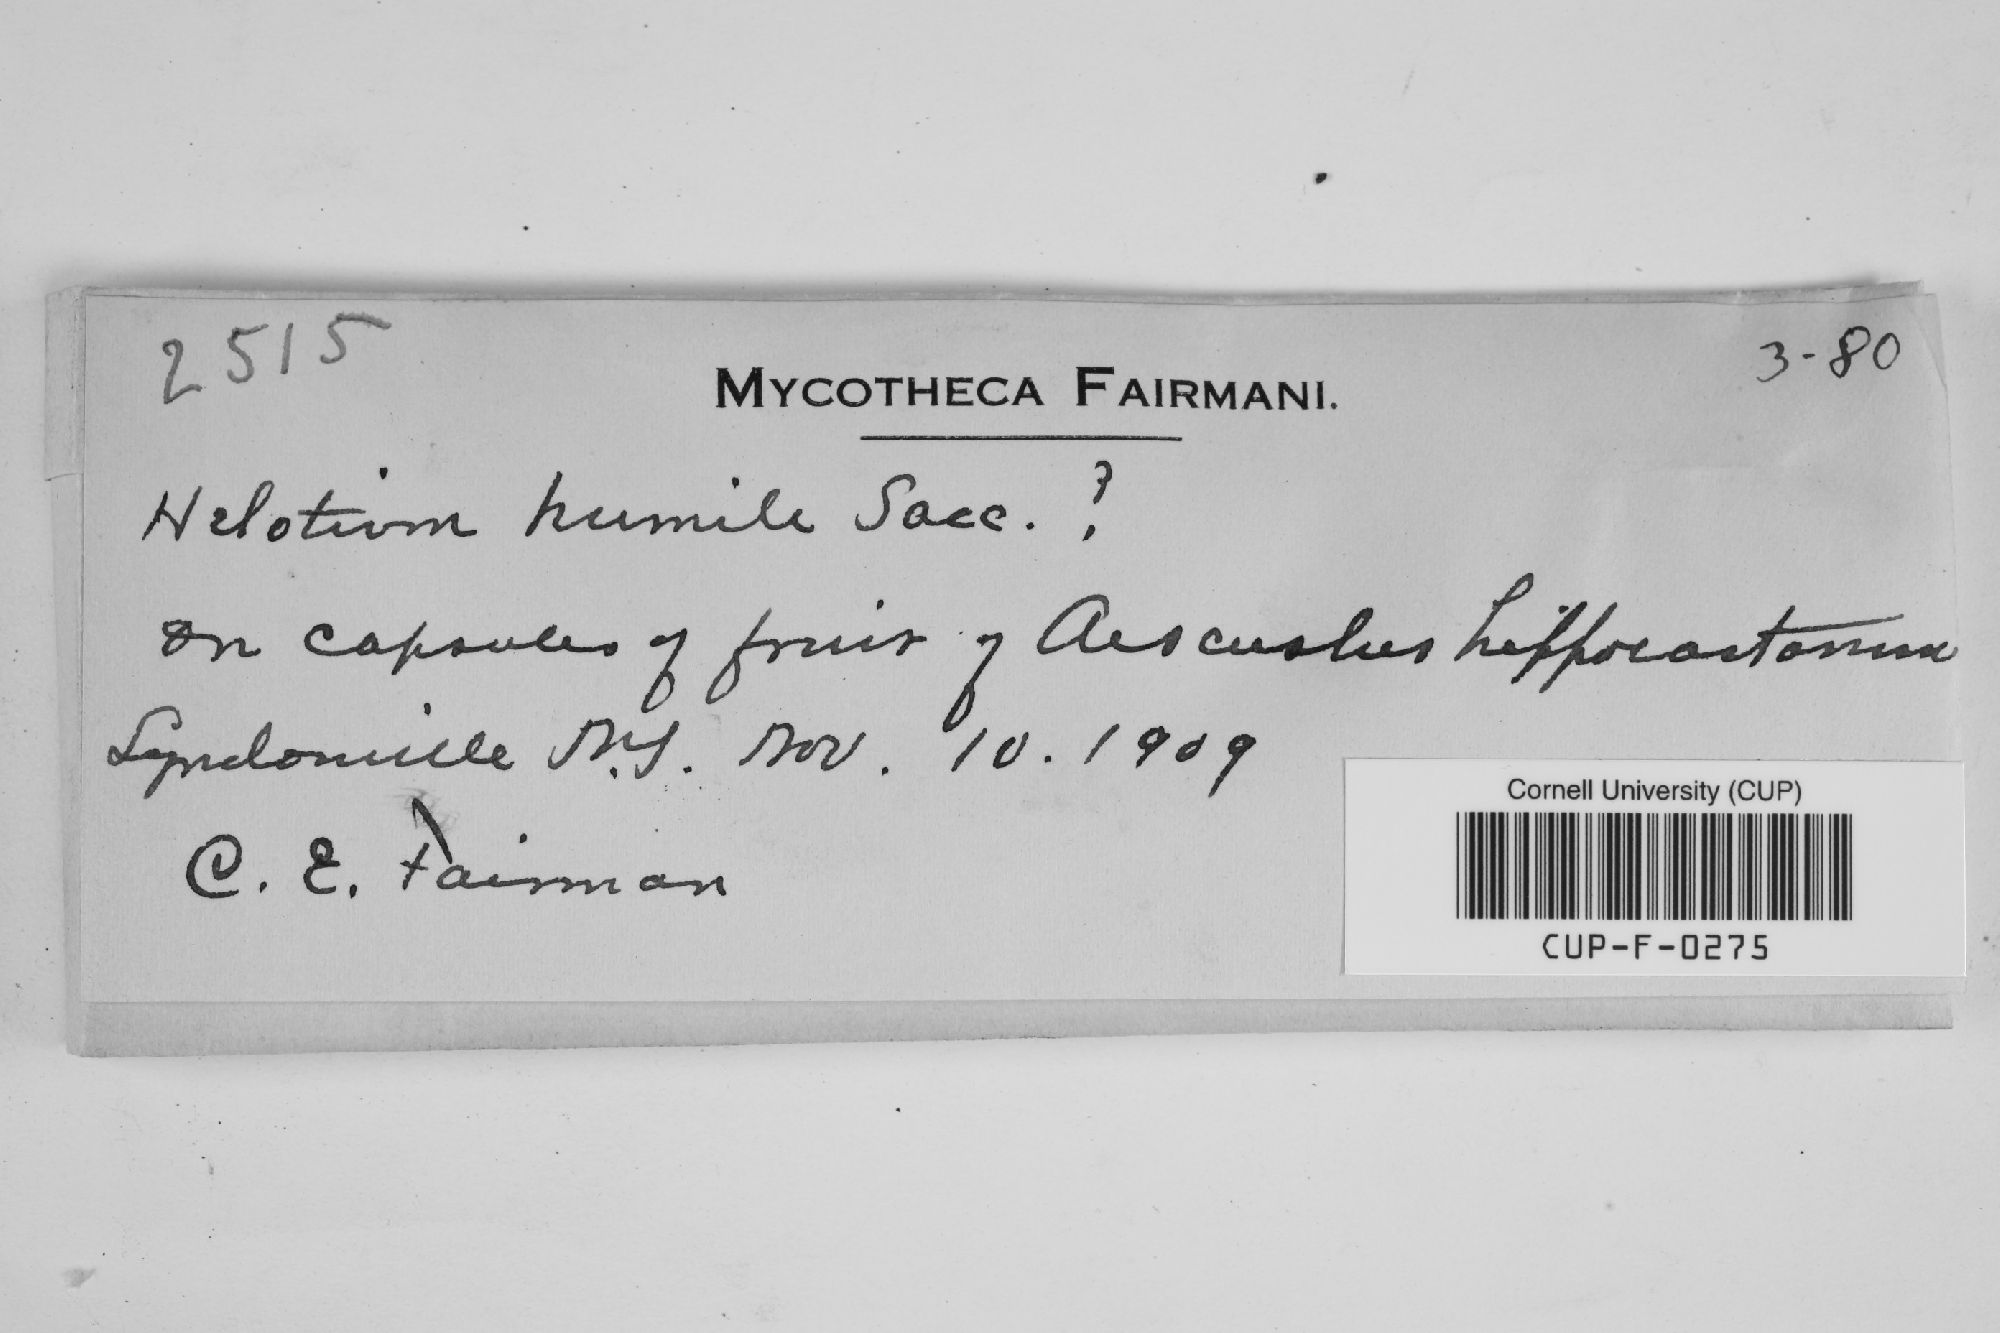 2515
3-80
MYCOTHECA FAIRMANI.
Helotium humile Sacc. ?
on capsules of fruit of Aescuslus hippocastanum
Lyndonville N.Y. Nov. 10. 1909
C. E. Fairman
Cornell University (CUP)
CUP-F-0275